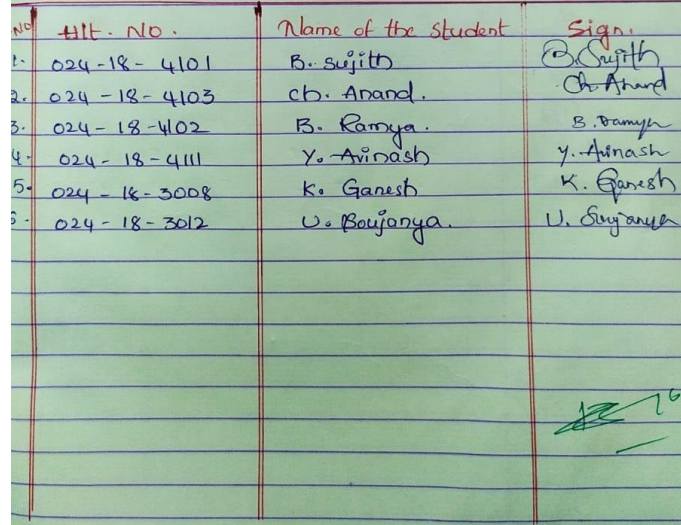 No Hlt. No. Name of the Student Sign.
1. 024-18-4101 B. Sujith B. Sujith
2. 024-18-4103 Ch. Anand. Ch. Anand
3. 024-18-4102 B. Ramya. B. Ramya
4. 024-18-4111 Y. Avinash Y. Avinash
5. 024-18-3008 K. Ganesh K. Ganesh
024-18-3012 U.